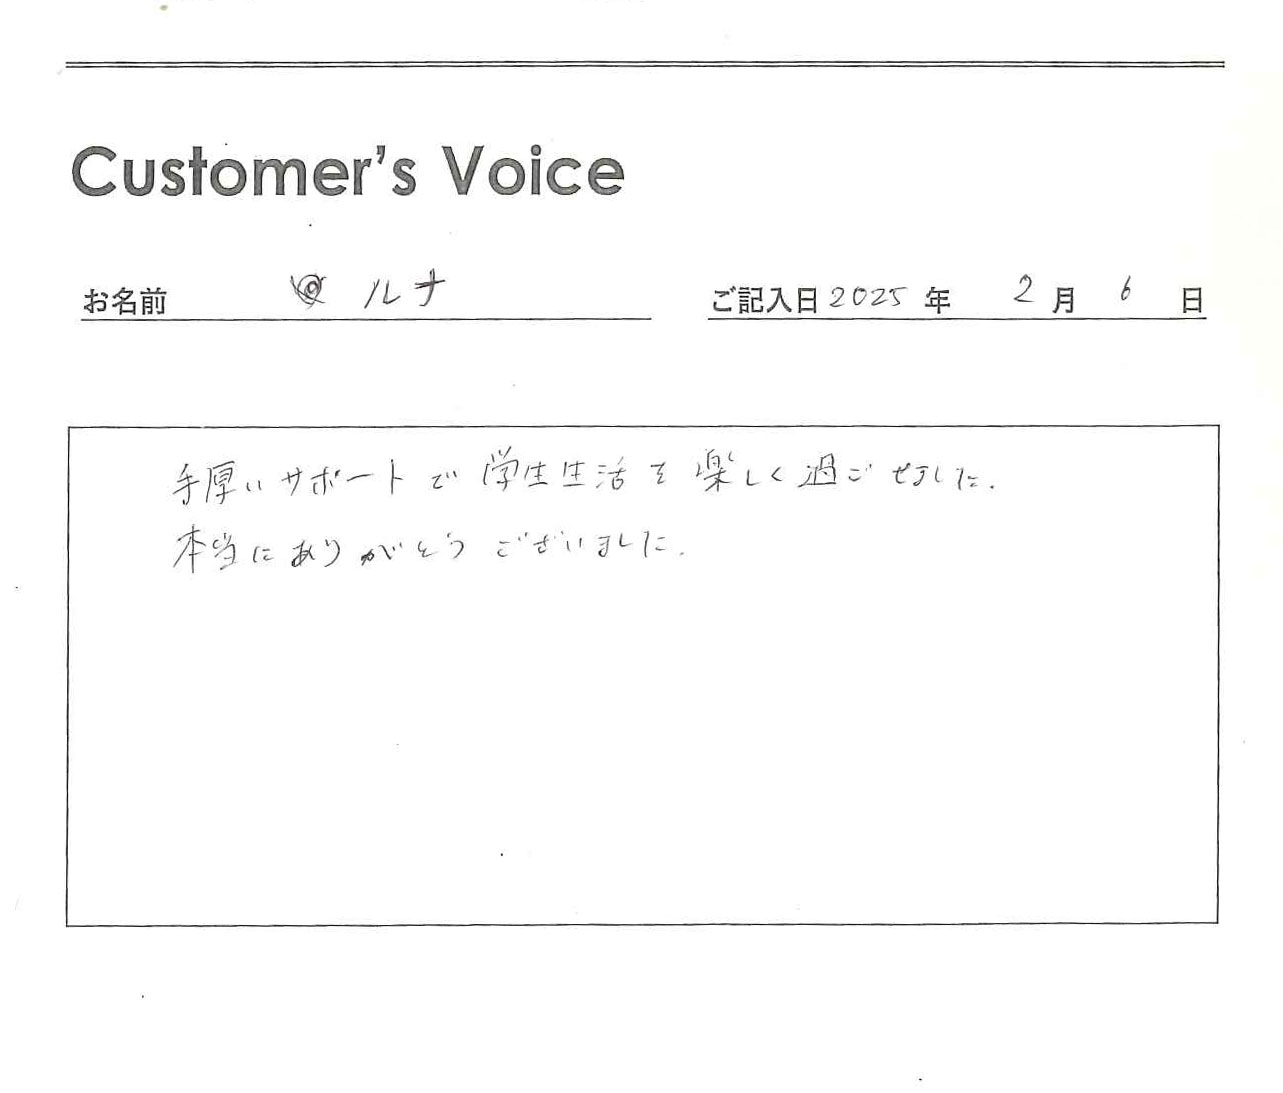 Customer's Voice
お名前 ルナ
ご記入日 2025 年 2 月 6 日
手厚いサポートで学生生活を楽しく過ごせました.
本当にありがとうございました.